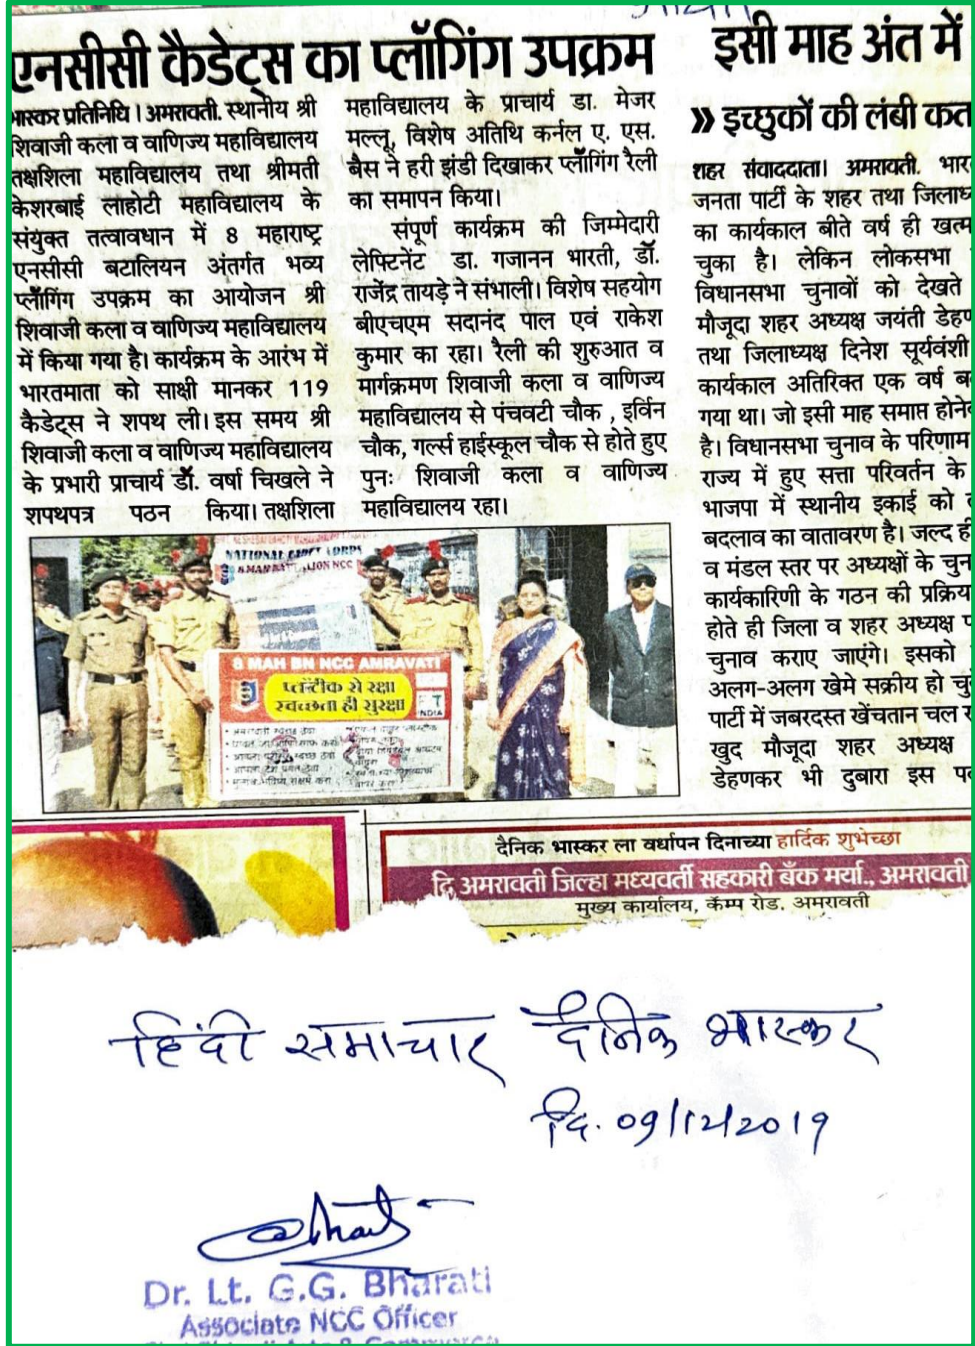 एनसीसी कैडेट्स का प्लॉगिंग उपक्रम
भास्कर प्रतिनिधि। अमरावती. स्थानीय श्री
शिवाजी कला व वाणिज्य महाविद्यालय
तक्षशिला महाविद्यालय तथा श्रीमती
केशरबाई लाहोटी महाविद्यालय के
संयुक्त तत्वावधान में 8 महाराष्ट्र
एनसीसी बटालियन अंतर्गत भव्य
प्लॉगिंग उपक्रम का आयोजन श्री
शिवाजी कला व वाणिज्य महाविद्यालय
में किया गया है। कार्यक्रम के आरंभ में
भारतमाता को साक्षी मानकर 119
कैडेट्स ने शपथ ली। इस समय श्री
शिवाजी कला व वाणिज्य महाविद्यालय
के प्रभारी प्राचार्य डॉ. वर्षा चिखले ने
शपथपत्र पठन किया। तक्षशिला
महाविद्यालय के प्राचार्य डा. मेजर
मल्लू, विशेष अतिथि कर्नल ए. एस.
बैस ने हरी झंडी दिखाकर प्लॉगिंग रैली
का समापन किया।
संपूर्ण कार्यक्रम की जिम्मेदारी
लेफ्टिनेंट डा. गजानन भारती, डॉ.
राजेंद्र तायड़े ने संभाली। विशेष सहयोग
बीएचएम सदानंद पाल एवं राकेश
कुमार का रहा। रैली की शुरुआत व
मार्गक्रमण शिवाजी कला व वाणिज्य
महाविद्यालय से पंचवटी चौक , इर्विन
चौक, गर्ल्स हाईस्कूल चौक से होते हुए
पुनः शिवाजी कला व वाणिज्य
महाविद्यालय रहा।
NATIONAL CADET CORPS
8 MAH BATTALION NCC
8 MAH BN NCC AMRAVATI
प्लास्टीक से रक्षा
स्वच्छता ही सुरक्षा
INDIA
इसी माह अंत में
» इच्छुकों की लंबी कत
शहर संवाददाता। अमरावती. भार
जनता पार्टी के शहर तथा जिलाध्
का कार्यकाल बीते वर्ष ही खत्म
चुका है। लेकिन लोकसभा
विधानसभा चुनावों को देखते
मौजूदा शहर अध्यक्ष जयंती डेहण
तथा जिलाध्यक्ष दिनेश सूर्यवंशी
कार्यकाल अतिरिक्त एक वर्ष ब
गया था। जो इसी माह समाप्त होने
है। विधानसभा चुनाव के परिणाम
राज्य में हुए सत्ता परिवर्तन के
भाजपा में स्थानीय इकाई को
बदलाव का वातावरण है। जल्द ही
व मंडल स्तर पर अध्यक्षों के चुन
कार्यकारिणी के गठन की प्रक्रिय
होते ही जिला व शहर अध्यक्ष प
चुनाव कराए जाएंगे। इसको
अलग-अलग खेमे सक्रीय हो चु
पार्टी में जबरदस्त खेंचतान चल र
खुद मौजूदा शहर अध्यक्ष
डेहणकर भी दुबारा इस प
दैनिक भास्कर ला वर्धापन दिनाच्या हार्दिक शुभेच्छा
दि अमरावती जिल्हा मध्यवर्ती सहकारी बँक मर्या., अमरावती
मुख्य कार्यालय, कॅम्प रोड. अमरावती
हिंदी समाचार दैनिक भास्कर
दि. 09/12/2019
Dr. Lt. G.G. Bharati
Associate NCC Officer